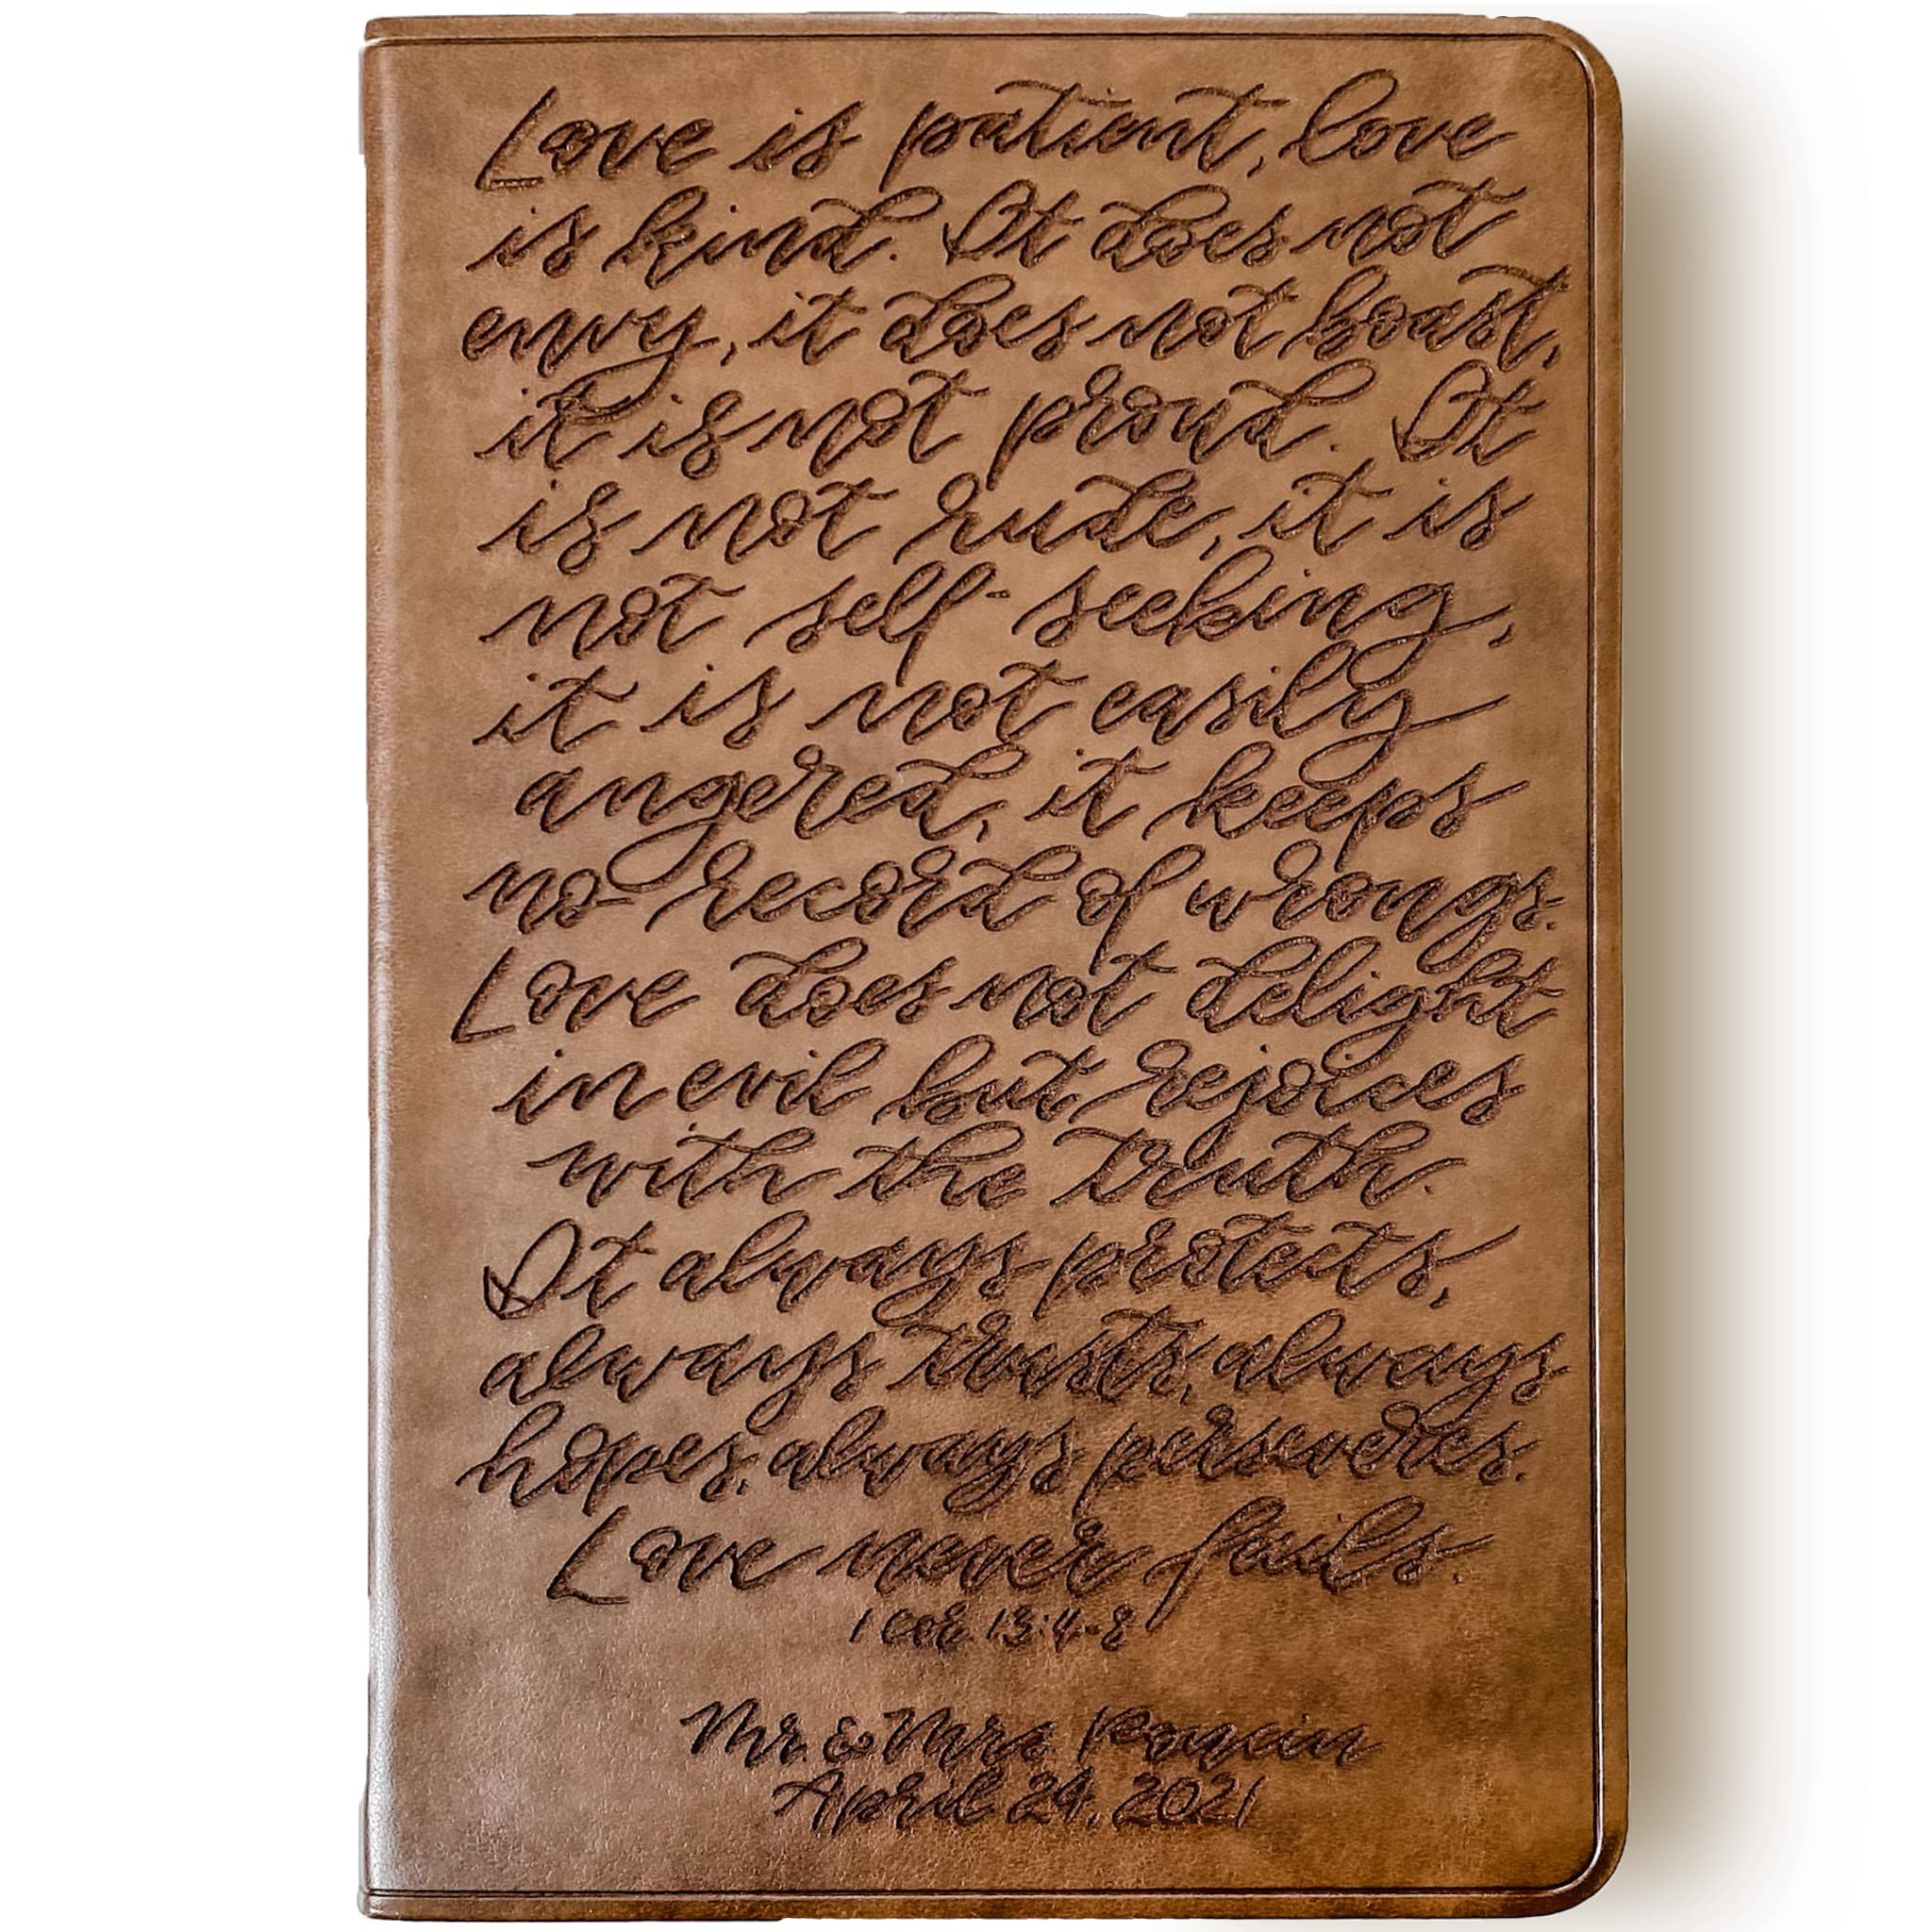 Love is patient, love
is kind. It does not
envy, it does not boast,
it is not proud. It
is not rude, it is
not self-seeking,
it is not easily
angered, it keeps
no record of wrongs.
Love does not delight
in evil but rejoices
with the truth.
It always protects,
always trusts, always
hopes, always perseveres.
Love never fails.
1 Cor. 13:4-8
Mr. & Mrs.
April 24, 2021